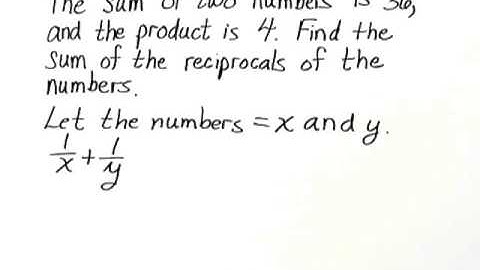 The sum of two numbers is 36,
and the product is 4. Find the
sum of the reciprocals of the
numbers.
Let the numbers = x and y.
1/x + 1/y